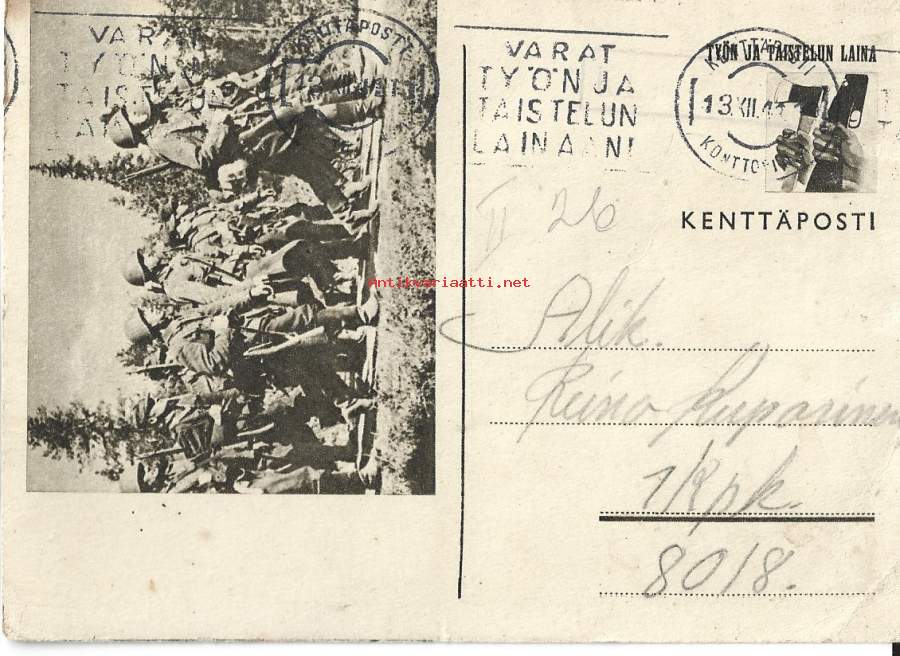 VARAT
TYÖN JA
TAISTELUN
LAINAAN!
KENTTÄPOSTI
13.XII.41
VARAT
TYÖN JA
TAISTELUN
LAINAAN!
TYÖN JA TAISTELUN LAINA
KENTTÄPOSTI
13.XII.41
KONTTORI
KENTTÄPOSTI
II 26
antikvariaatti.net
Alik.
Reino Kuparinen
1/Kpk.
8018.